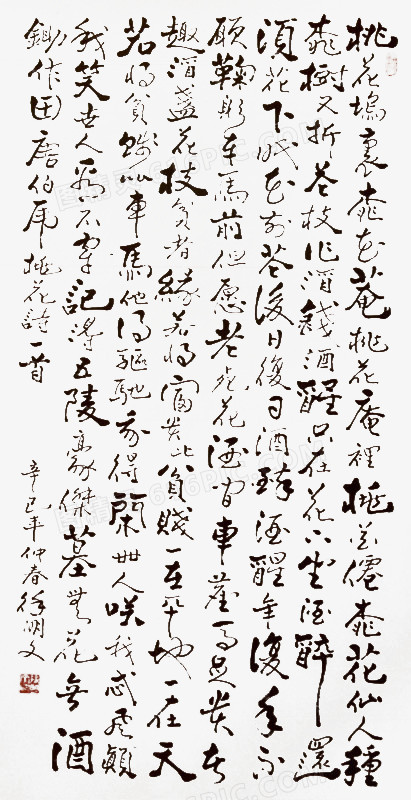 桃花塢裏桃花菴桃花庵裡桃花僊桃花仙人種
桃樹又折花枝作酒錢酒醒只在花下坐酒醉還
須花下眠花前花後日復日酒醉酒醒年復年不
願鞠躬車馬前但愿老死花酒间車塵馬足貴者
趣酒盞花枝貧者緣若將富貴比貧賤一在平地一在天
若將貧賤比車馬他得驅馳我得閑世人咲我忒風顛
我笑世人看不穿記得五陵豪傑墓無花無酒
鋤作田唐伯虎桃花詩一首
辛巳年仲春徐明文